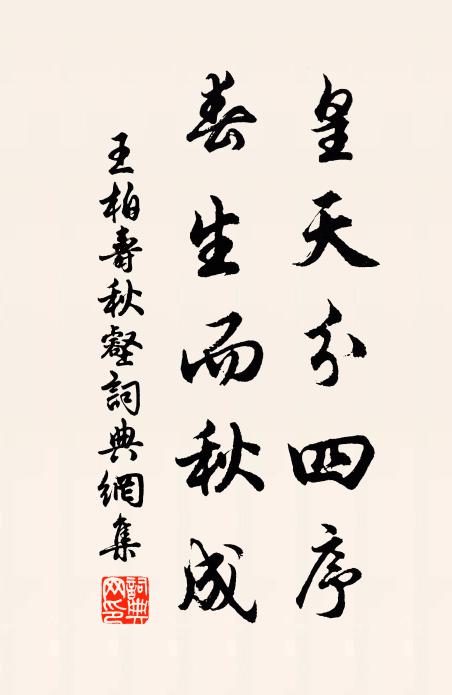 皇天分四序
春生而秋成
王柏壽秋壑詞典網集
詞典
網印